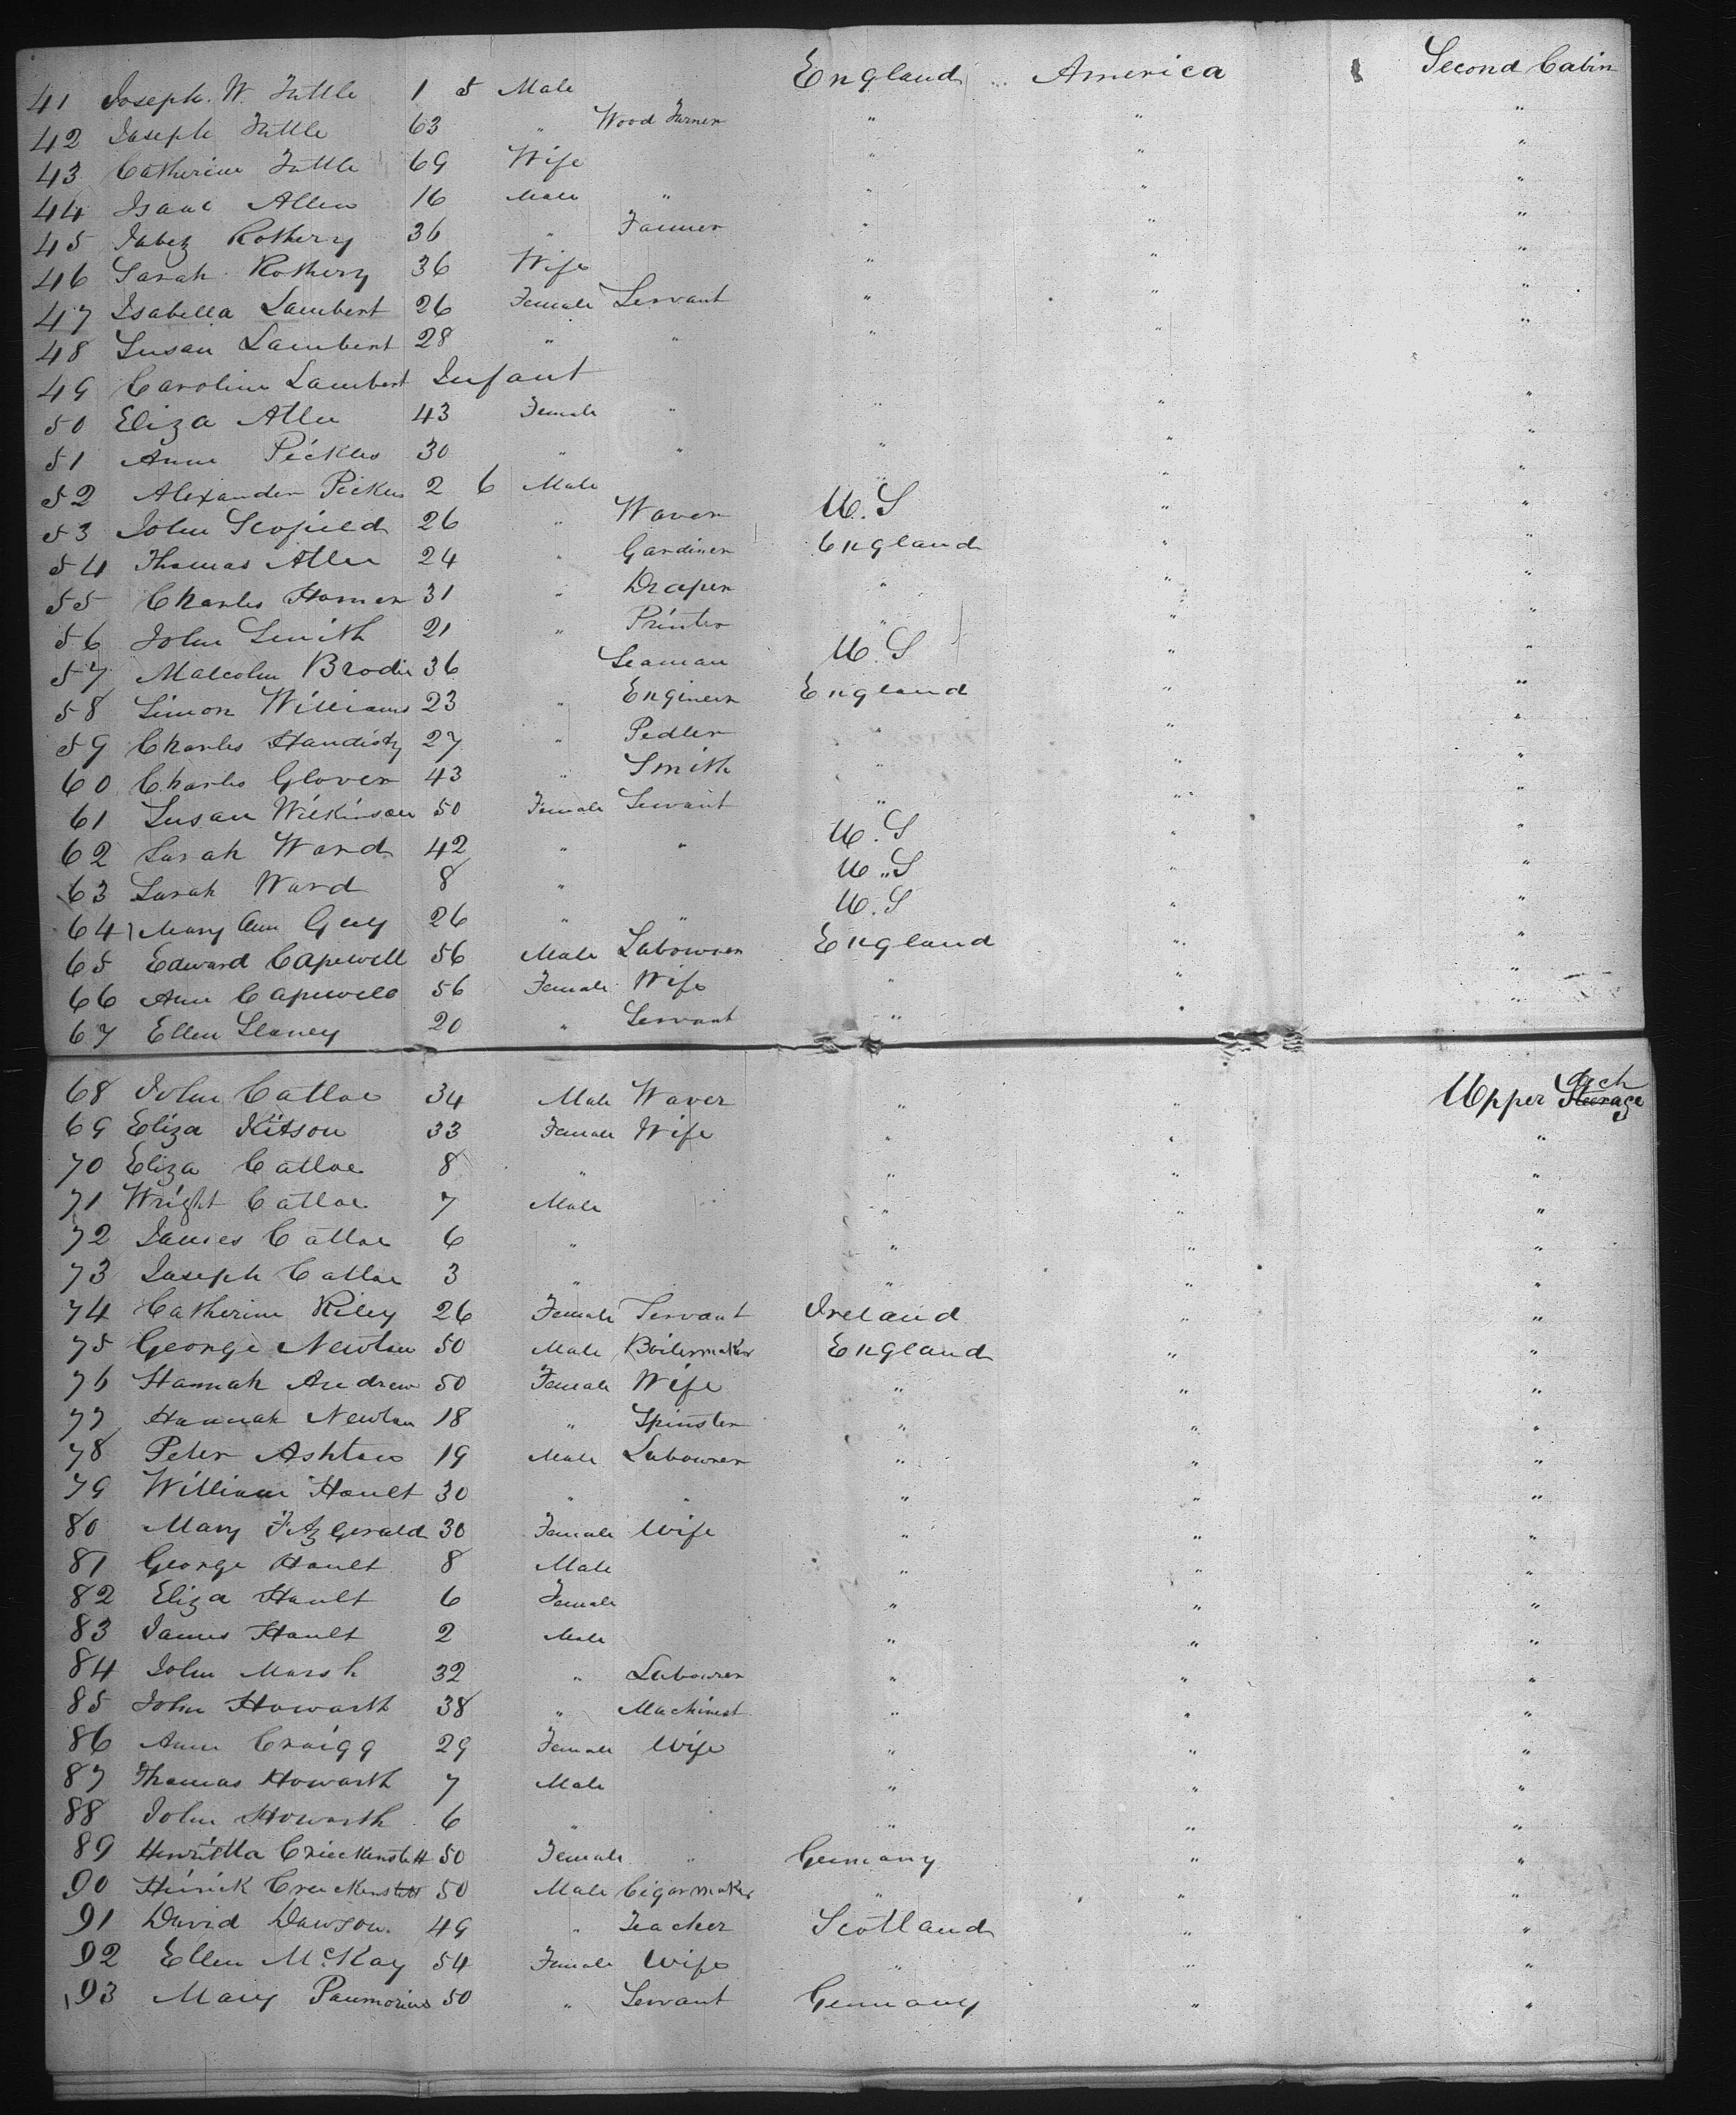 41 Joseph. W. Tuttle 1 5 Male England " America Second Cabin
42 Joseph Tuttle 63 " Wood Turner " " "
43 Catherine Tuttle 69 Wife " " "
44 Isaac Allen 16 Male " " " "
45 Jabez Rothery 36 " Farmer " " "
46 Sarah Rothery 36 Wife " " "
47 Isabella Lambert 26 Female Servant " " "
48 Susan Lambert 28 " " " " "
49 Caroline Lambert Infant
50 Eliza Allen 43 Female " " " "
51 Anne Pickles 30 " " " " "
52 Alexander Pickles 2 6 Male " " "
53 John Scofield 26 " Waver U.S " "
54 Thomas Allen 24 " Gardiner England " "
55 Charles Homer 31 " Draper " " "
56 John Smith 21 " Printer " " "
57 Malcolm Brodie 36 Seaman U.S " "
58 Simon Williams 23 " Engineer England " "
59 Charles Handisty 27 " Pedler " " "
60 Charles Glover 43 " Smith " " "
61 Susan Wilkinson 50 Female Servant " " "
62 Sarah Ward 42 " " U.S " "
63 Sarah Ward 8 " U.S " "
64 Mary Ann Guy 26 " " U.S " "
65 Edward Capewell 56 Male Labourer England " "
66 Ann Capewell 56 Female Wife " " "
67 Ellen Slaney 20 " Servant " " "
68 John Catloe 34 Male Waver " " Upper Steerage Deck
69 Eliza Kitson 33 Female Wife " " "
70 Eliza Catloe 8 " " " "
71 Wright Catloe 7 Male " " "
72 James Catloe 6 " " " "
73 Joseph Catloe 3 " " " "
74 Catherine Riley 26 Female Servant Ireland " "
75 George Newton 50 Male Boilermaker England " "
76 Hannah Andrew 50 Female Wife " " "
77 Hannah Newton 18 " Spinster " " "
78 Peter Ashton 19 Male Labourer " " "
79 William Hault 30 " " " " "
80 Mary Fitzgerald 30 Female Wife " " "
81 George Hault 8 Male " " "
82 Eliza Hault 6 Female " " "
83 James Hault 2 Male " " "
84 John Marsh 32 " Labourer " " "
85 John Howarth 38 " Machinest " " "
86 Ann Craigg 29 Female Wife " " "
87 Thomas Howarth 7 Male " " "
88 John Howarth 6 " " " "
89 Henritta 50 Female " Germany " "
90 50 Male Cigarmaker " " "
91 David Dawson 49 " Teacher Scotland " "
92 Ellen McKay 54 Female Wife " " "
93 Mary 50 " Servant Germany " "